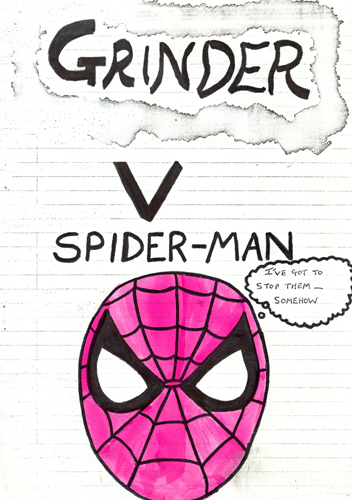 GRINDER
V
SPIDER-MAN
I'VE GOT TO
STOP THEM —
SOMEHOW